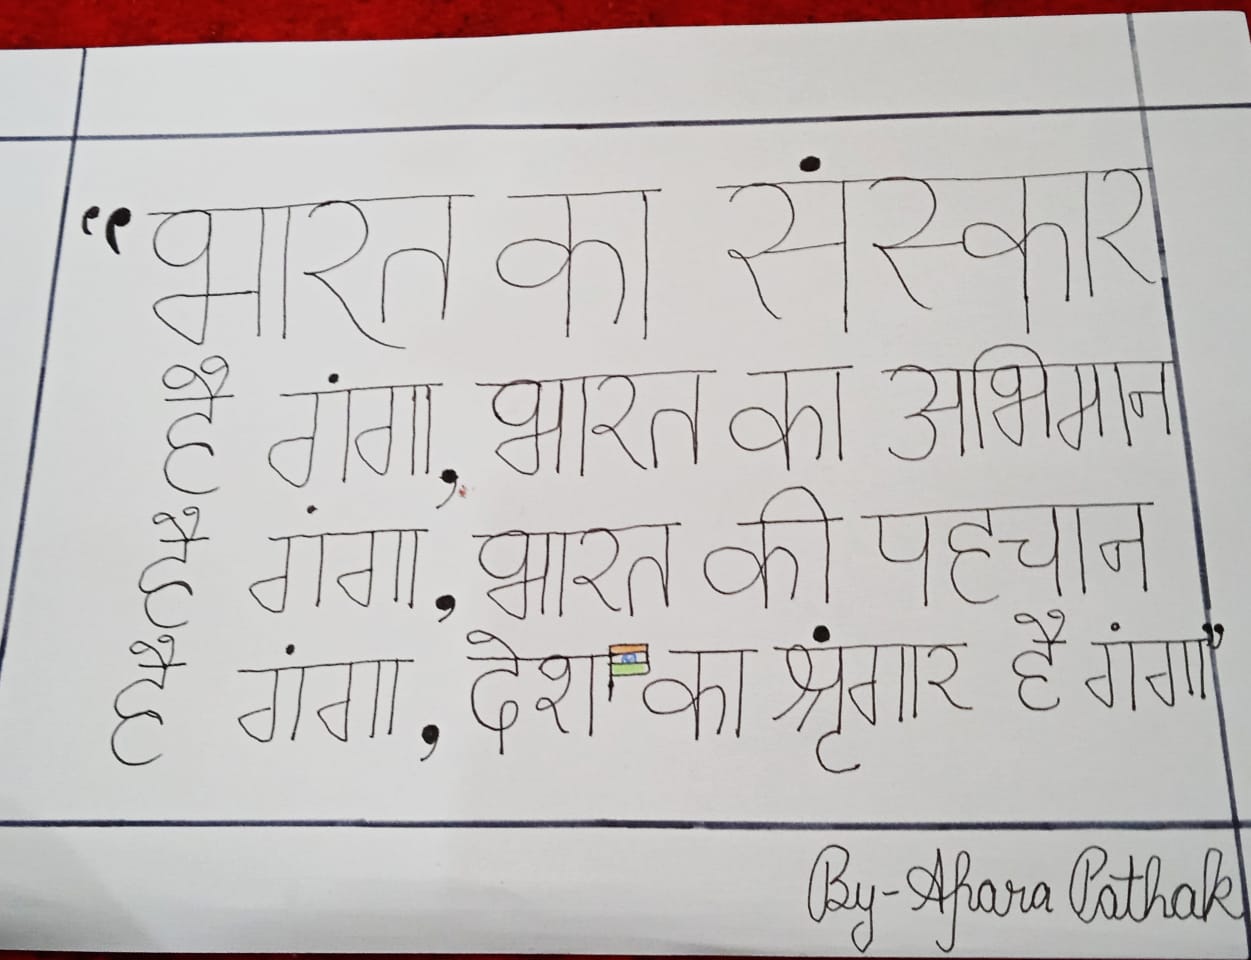 “भारत का संस्कार
है गंगा, भारत का अभिमान
है गंगा, भारत की पहचान
है गंगा, देश का श्रृंगार है गंगा”
By-Apara Pathak